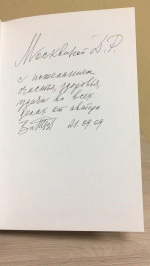 Москвиной Д.Р.
с пожеланием
счастья, здоровья,
удачи во всех
делах от автора
21.09.09